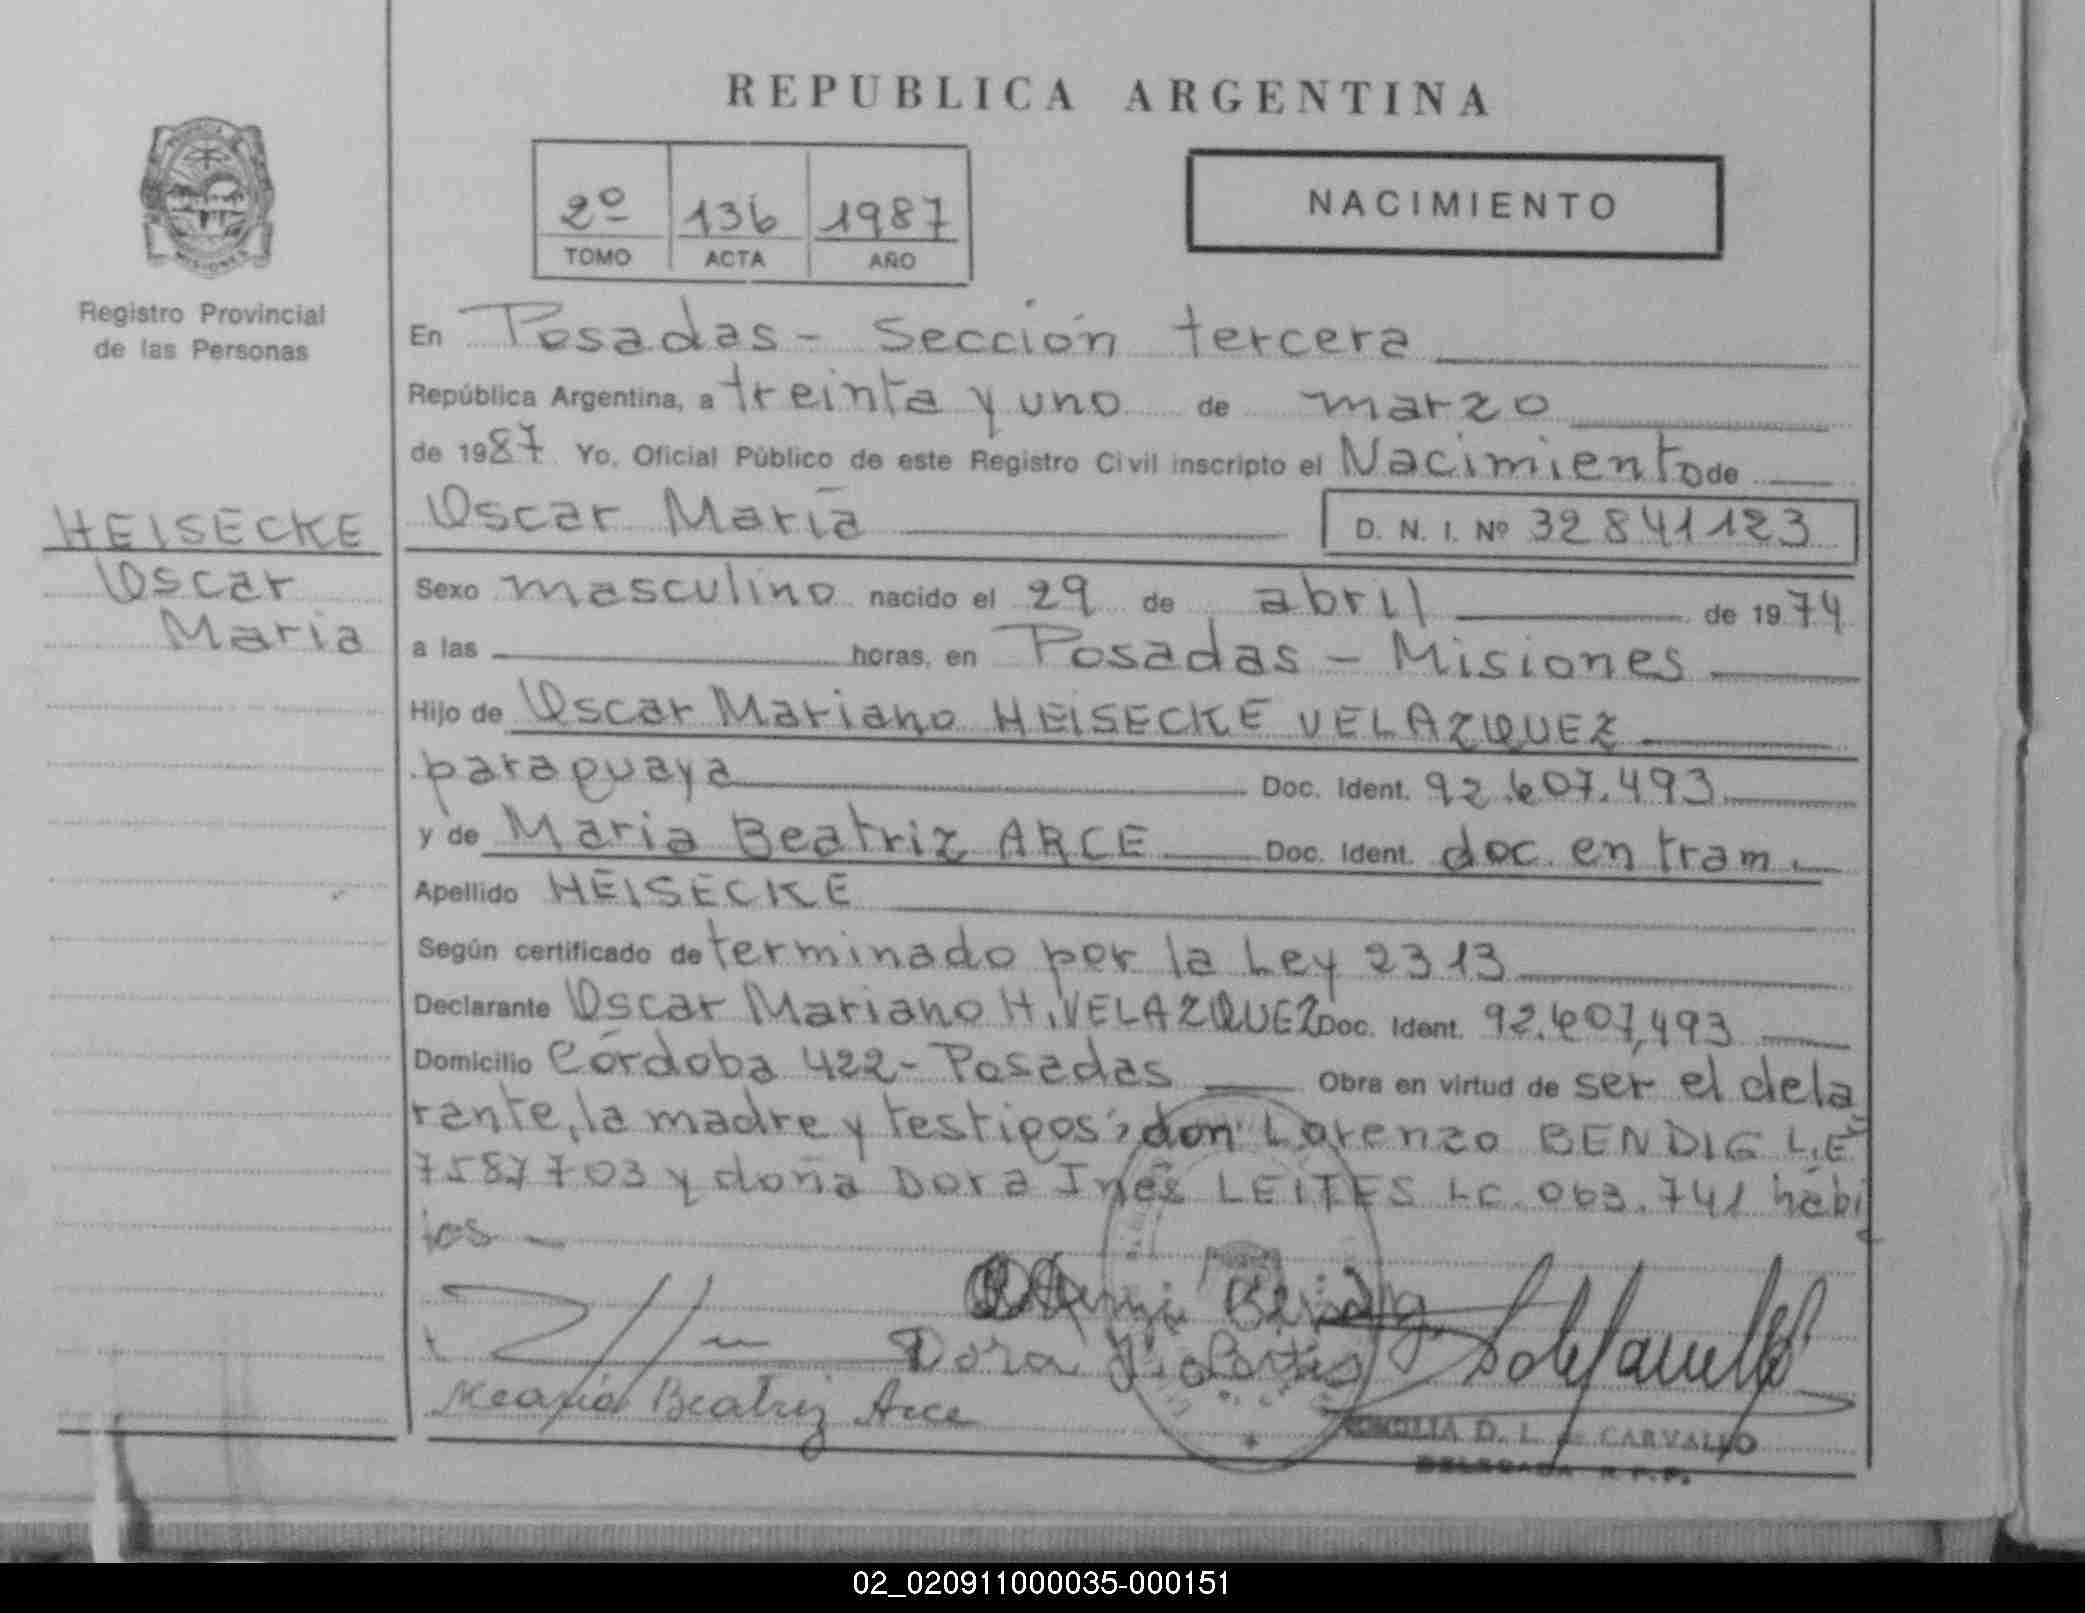 REPUBLICA ARGENTINA
2º 136 1987
TOMO ACTA AÑO
NACIMIENTO
MISIONES
Registro Provincial
de las Personas
HEISECKE
Oscar
Maria
En Posadas - Sección tercera
República Argentina, a treinta y uno de marzo
de 1987 Yo, Oficial Público de este Registro Civil inscripto el Nacimiento de
Oscar Maria D. N. I. Nº 32841123
Sexo masculino nacido el 29 de abril de 1974
a las horas, en Posadas - Misiones
Hijo de Oscar Mariano HEISECKE VELAZQUEZ
paraguaya Doc. Ident. 92.607.493
y de Maria Beatriz ARCE Doc. Ident. doc. en tram.
Apellido HEISECKE
Según certificado determinado por la Ley 2313
Declarante Oscar Mariano H. VELAZQUEZ Doc. Ident. 92.607,493
Domicilio Córdoba 422- Posadas Obra en virtud de ser el dela
rante, la madre y testigos; don Lorenzo BENDIG L.E
7587703 y doña Dora Inés LEITES LC. 063.741 hábi
les -
Dora
Maria Beatriz Arce
D. L. de CARVALLO
DELEGADA R.P.P.
02_020911000035-000151